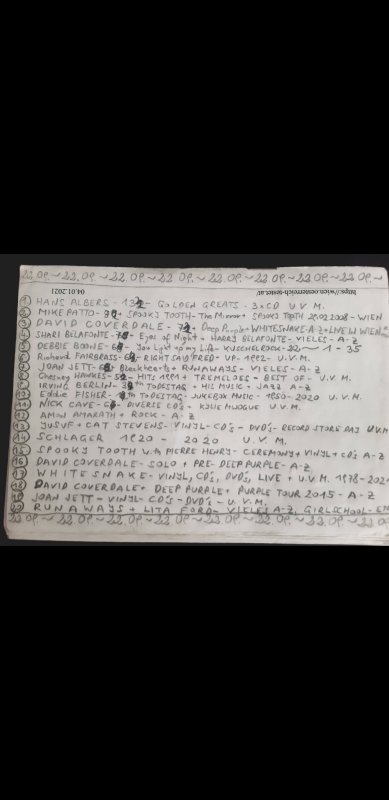 22.09.~22.09.~22.09.~22.09.~22.09.~22.09.~22.09.~
04.01.2021 https://wien.oesterreich-testet.at/
① HANS ALBERS - GOLDEN GREATS - 3xCD U.V.M.
② MIKE PATTO - SPOOKY TOOTH - The Mirror + SPOOKY TOOTH 29.02.2008 - WIEN
③ DAVID COVERDALE - Deep Purple + WHITESNAKE A-Z + LIVE IN WIEN
④ SHARI BELAFONTE - Eyes of Night + HARRY BELAFONTE - VIELES - A-Z
⑤ DEBBIE BOONE - You Light up my Life - KUSCHELROCK - 1 - 35
⑥ Richard FAIRBRASS - RIGHT SAID FRED - UP - 1992 - U.V.M.
⑦ JOAN JETT - Blackhearts + RUNAWAYS - VIELES - A-Z
⑧ Chesney HAWKES - HITS 1991 + TREMELOES - BEST OF - U.V.M.
⑨ IRVING BERLIN - TODESTAG - HIS MUSIC - JAZZ A-Z
⑩ Eddie FISHER - TODESTAG - JUKEBOX MUSIC - 1950 - 2020 U.V.M.
⑪ NICK CAVE - DIVERSE CD's + KYLIE MINOGUE U.V.M.
⑫ AMON AMARATH + ROCK - A-Z
⑬ YUSUF + CAT STEVENS - VINYL - CD's - DVD's - RECORD STORE DAY U.V.M
⑭ SCHLAGER 1920 - 2020 U.V.M.
⑮ SPOOKY TOOTH with PIERRE HENRY - CEREMONY + VINYL + CD's A-Z
⑯ DAVID COVERDALE - SOLO + PRE - DEEP PURPLE - A-Z
⑰ WHITESNAKE - VINYL, CD's, DVD's, LIVE + U.V.M. 1978 - 202
⑱ DAVID COVERDALE + DEEP PURPLE + PURPLE TOUR 2015 - A-Z
⑲ JOAN JETT - VINYL - CD'S - DVD's - U.V.M.
⑳ RUNAWAYS + LITA FORD - VIELES A-Z, GIRLSCHOOL -
22.09.~22.09.~22.09.~22.09.~22.09.~22.09.~22.09.